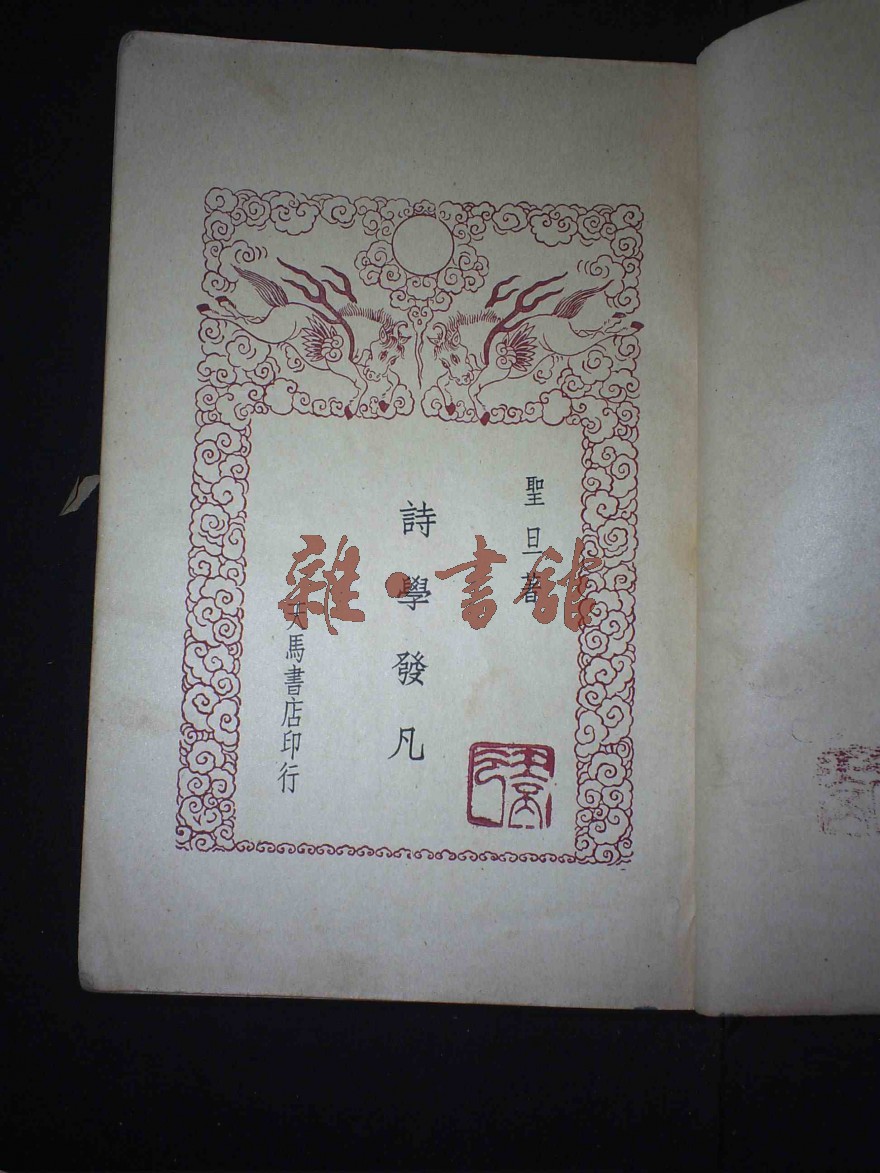 聖旦著
詩學發凡
天馬書店印行
雜·書館